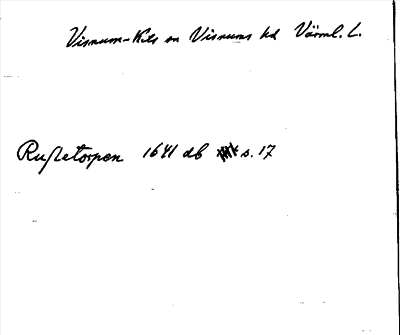 Visnum-Kils sn Visnums hd Värml. L.
Rußetorpen 1641 db s. 17